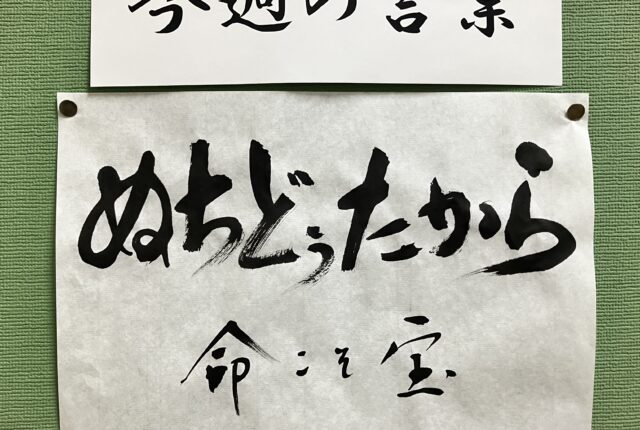 今週の言葉
ぬちどぅたから
命こそ宝